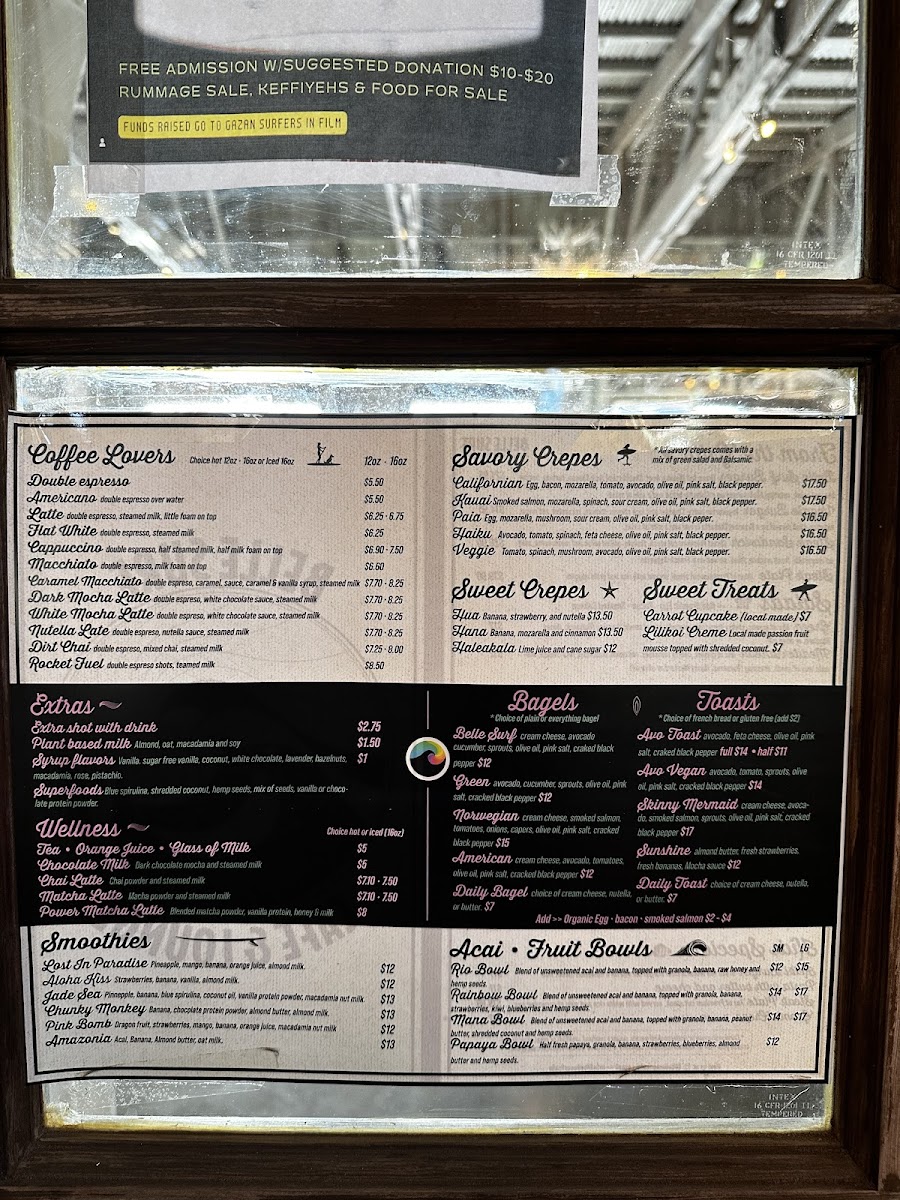 FREE ADMISSION W/SUGGESTED DONATION $10-$20
RUMMAGE SALE, KEFFIYEHS & FOOD FOR SALE
FUNDS RAISED GO TO GAZAN SURFERS IN FILM
INTEX
16 CFR 1201 II
TEMPERED
Coffee Lovers Choice hot 12oz - 16oz or Iced 16oz 12oz - 16oz
Double espresso $5.50
Americano double espresso over water $5.50
Latte double espresso, steamed milk, little foam on top $6.25 - 6.75
Flat White double espresso, steamed milk $6.25
Cappuccino double espresso, half steamed milk, half milk foam on top $6.90 - 7.50
Macchiato double espresso, milk foam on top $6.60
Caramel Macchiato double espreso, caramel, sauce, caramel & vanilla syrup, steamed milk $7.70 - 8.25
Dark Mocha Latte double espresso, white chocolate sauce, steamed milk $7.70 - 8.25
White Mocha Latte double espresso, white chocolate sauce, steamed milk $7.70 - 8.25
Nutella Late double espreso, nutella sauce, steamed milk $7.70 - 8.25
Dirt Chai double espreso, mixed chai, steamed milk $7.25 - 8.00
Rocket Fuel double espreso shots, teamed milk $8.50
Savory Crepes * All savory crepes comes with a
mix of green salad and Balsamic.
Californian Egg, bacon, mozarella, tomato, avocado, olive oil, pink salt, black pepper. $17.50
Kauai Smoked salmon, mozarella, spinach, sour cream, olive oil, pink salt, black pepper. $17.50
Paia Egg, mozarella, mushroom, sour cream, olive oil, pink salt, black pepper. $16.50
Haiku Avocado, tomato, spinach, feta cheese, olive oil, pink salt, black pepper. $16.50
Veggie Tomato, spinach, mushroom, avocado, olive oil, pink salt, black pepper. $16.50
Sweet Crepes
Hua Banana, strawberry, and nutella $13.50
Hana Banana, mozarella and cinnamon $13.50
Haleakala Lime juice and cane sugar $12
Sweet Treats
Carrot Cupcake (local made) $7
Lilikoi Creme Local made passion fruit
mousse topped with shredded coconut. $7
Extras
Extra shot with drink $2.75
Plant based milk Almond, oat, macadamia and soy $1.50
Syrup flavors Vanilla, sugar free vanilla, coconut, white chocolate, lavender, hazelnuts, $1
macadamia, rose, pistachio.
Superfoods Blue spirulina, shredded coconut, hemp seeds, mix of seeds, vanilla or choco-
late protein powder.
Wellness Choice hot or iced (16oz)
Tea • Orange Juice • Glass of Milk $5
Chocolate Milk Dark chocolate mocha and steamed milk $6
Chai Latte Chai powder and steamed milk $7.10 - 7.50
Matcha Latte Macha powder and steamed milk $7.10 - 7.50
Power Matcha Latte Blended matcha powder, vanilla protein, honey & milk $8
Bagels
* Choice of plain or everything bagel
Belle Surf cream cheese, avocado
cucumber, sprouts, olive oil, pink salt, craked black
pepper $12
Green avocado, cucumber, sprouts, olive oil, pink
salt, cracked black pepper $12
Norwegian cream cheese, smoked salmon,
tomatoes, onions, capers, olive oil, pink salt, cracked
black pepper $15
American cream cheese, avocado, tomatoes,
olive oil, pink salt, cracked black pepper $12
Daily Bagel choice of cream cheese, nutella,
or butter. $7
Toasts
* Choice of french bread or gluten free (add $2)
Avo Toast avocado, feta cheese, olive oil, pink
salt, craked black pepper full $14 • half $11
Avo Vegan avocado, tomato, sprouts, olive
oil, pink salt, cracked black pepper $14
Skinny Mermaid cream cheese, avoca-
do, smoked salmon, sprouts, olive oil, pink salt, cracked
black pepper $17
Sunshine almond butter, fresh strawberries,
fresh bananas, Mocha sauce $12
Daily Toast choice of cream cheese, nutella,
or butter. $7
Add >> Organic Egg - bacon - smoked salmon $2 - $4
Smoothies
Lost In Paradise Pineapple, mango, banana, orange juice, almond milk. $12
Aloha Kiss Strawberries, banana, vanilla, almond milk. $12
Jade Sea Pinnepple, banana, blue spirulina, coconut oil, vanilla protein powder, macadamia nut milk $13
Chunky Monkey Banana, chocolate protein powder, almond butter, almond milk. $13
Pink Bomb Dragon fruit, strawberries, mango, banana, orange juice, macadamia nut milk $12
Amazonia Acai, Banana, Almond butter, oat milk. $13
Acai • Fruit Bowls SM LG
Rio Bowl Blend of unsweetened acai and banana, topped with granola, banana, raw honey and $12 $15
hemp seeds.
Rainbow Bowl Blend of unsweetened acai and banana, topped with granola, banana, $14 $17
strawberries, kiwi, blueberries and hemp seeds.
Mana Bowl Blend of unsweetened acai and banana, topped with granola, banana, peanut $14 $17
butter, shredded coconut and hemp seeds.
Papaya Bowl Half fresh papaya, granola, banana, strawberries, blueberries, almond $12
butter and hemp seeds.
INTEX
16 CFR 1201 II
TEMPERED